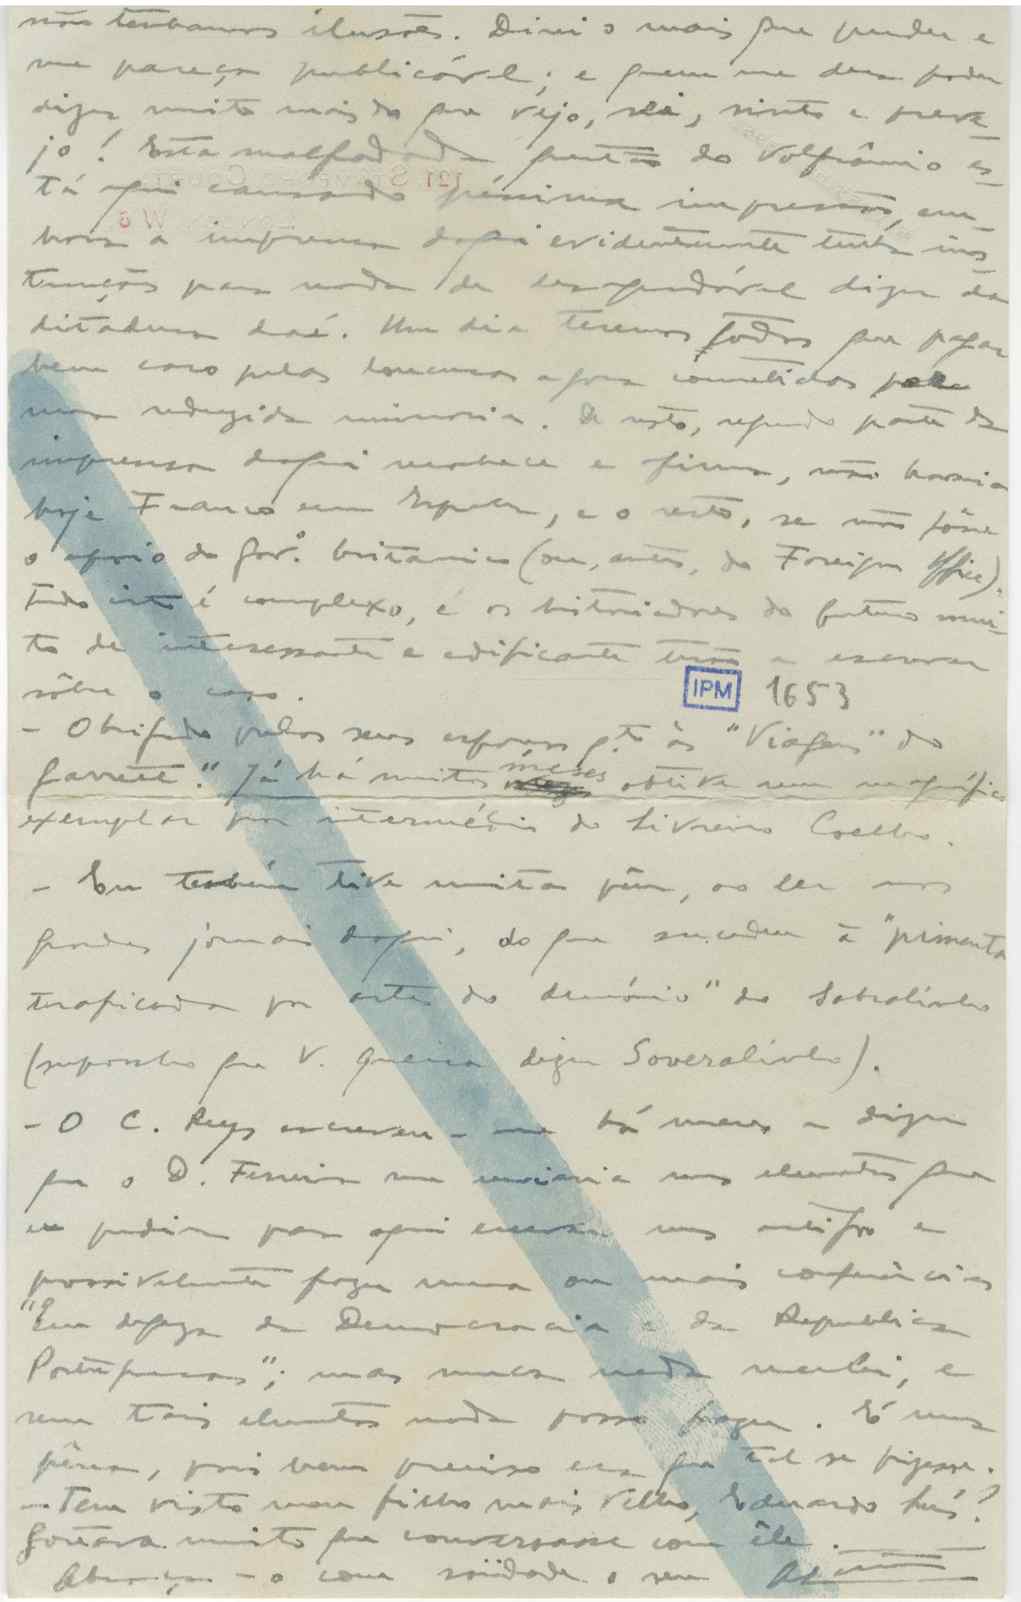 não tenhamos ilusões. Direi o mais que puder e
me pareça publicável; e quem me dera poder
dizer muito mais do que vejo, sei, sinto e preve-
jo! Esta malfadada questão do volfrâmio es-
tá aqui causando péssima impressão, em-
bora a imprensa daqui evidentemente tenha ins-
truções para nada de desagradável dizer da
ditadura daí. Um dia teremos todos que pagar
bem caro pelas loucuras agora cometidas por
uma reduzida minoria. De resto, segundo parte da
imprensa daqui reconhece e afirma, não haveria
hoje Franco em Espanha, e o resto, se não fôsse
o apoio do Gov.º britanico (ou, antes, do Foreign Office).
Tudo isto é complexo, e os historiadores do futuro mui-
to de interessante e edificante terão a escrever
sôbre o caso.
IPM 1653
- Obrigado pelos seus esforços q.to às "Viagens" do
Garrett." Já há muitos meses obtive um magnífico
exemplar por intermédio do livreiro Coelho.
- Eu também tive muita pena, ao ler nos
grandes jornais daqui, do que sucedeu à "pimenta
traficada por artes do demónio" do Sobralinho
(suponho que V. queira dizer Soveralinho).
- O C. Reys escreveu-me há meses a dizer
que o D. Ferreira me enviaria uns elementos para
eu pudir para aqui escrever uns artigos e
possivelmente fazer uma ou mais conferências
"Em defeza da Democracia e da Republica
Portuguesas"; mas nunca nada recebi, e
sem tais elementos nada posso fazer. É uma
pena, pois bem preciso era que tal se fizesse.
- Tem visto meu filho mais velho, Eduardo Luís?
Gostava muito que conversasse com êle.
Abraça-o com saüdade o seu